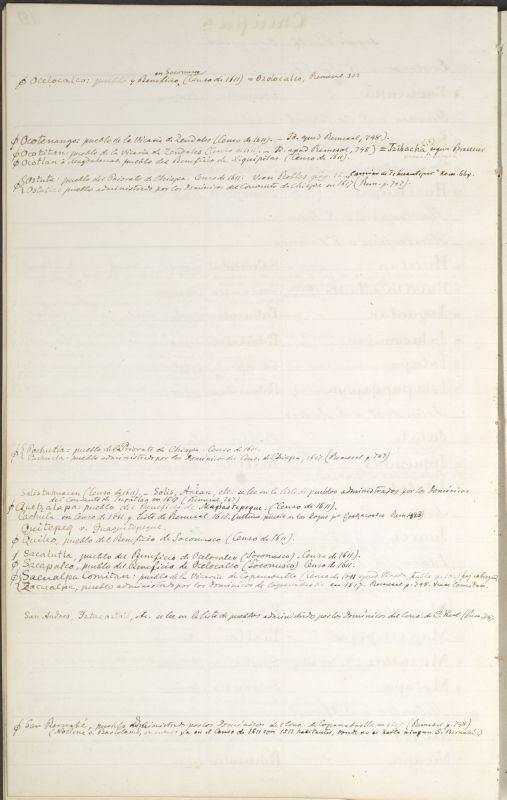 en Soconusco
ϕ Ocelocalco: pueblo y Beneficio, (Censo de 1611) = Ozolocalco, Remesal 
ϕ Ocotenango: pueblo de la Vicaria de Zendales (Censo de 1611). – Id. apud Remesal, 748).
ϕ Ocotitan: pueblo de la Vicaria de Zendales (Censo 1611. – Id. apud Remesal, 748) = Tzibachà (?) segun Brasseur
ϕ Ocotlan ó Magdalenas, pueblo del Beneficio de Xiquipilas (Censo de 1611).
ϕ Ostuta: pueblo del Priorato de Chiapa. Censo de 1611. Vean Robles pág. camino de Tehuantepec
Ostutla: pueblo administrado por los Dominicos del Convento de Chiapa en 1617 (Rem. p. 747).
ϕ Pochutla: pueblo del Priorato de Chiapa. Censo de 1611.
Pochutla: pueblo administrado por los Dominicos del Conv. de Chiapa, 1617 (Remesal p. 747)
Solistahuacan (Censo de 1611). – Solis, etc. se lee en la lista de pueblos administrados por los Dominicos
del Convento de Tecpatlan en 1617 (Remesal, 747)
ϕ Quetzalapa: pueblo del Beneficio de Mapastepeque. (Censo de 1611).
Quechula en Censo de 1611 y Lista de Remesal 1611. pueblo de los Zoques
Quitepeq v. Izaguitepeque.
ϕ Quilio, pueblo del Beneficio de Soconusco (Censo de 1611).
ϕ Sacalutla, pueblo del Beneficio de Ocelocalco (Soconusco). Censo de 1611).
ϕ Sacapulco, pueblo del Beneficio de Ocelocalco (Soconusco) Censo de 1611.
ϕ Sacualpa Comitan: pueblo de la Vicaria de Copanaustla (Censo de 1611 apud Pineda
Zacualpa, pueblo administrado por los Dominicos de Copanabastla en 1617. Remesal p. 748. Vean Comitan.
San Andres, etc. se lee en la lista de pueblos administrados por los Dominicos del Conv. de C. Real (Rem. 747)
ϕ San Bernabé, pueblo administrado por los Dominicos del Conv. de Copanabastla en 1617 (Remesal p. 748)
(Notese S. Bartolomé, ya en el Censo de 1611 con 1212 habitantes, donde no se halla ningun S. Bernabé.)